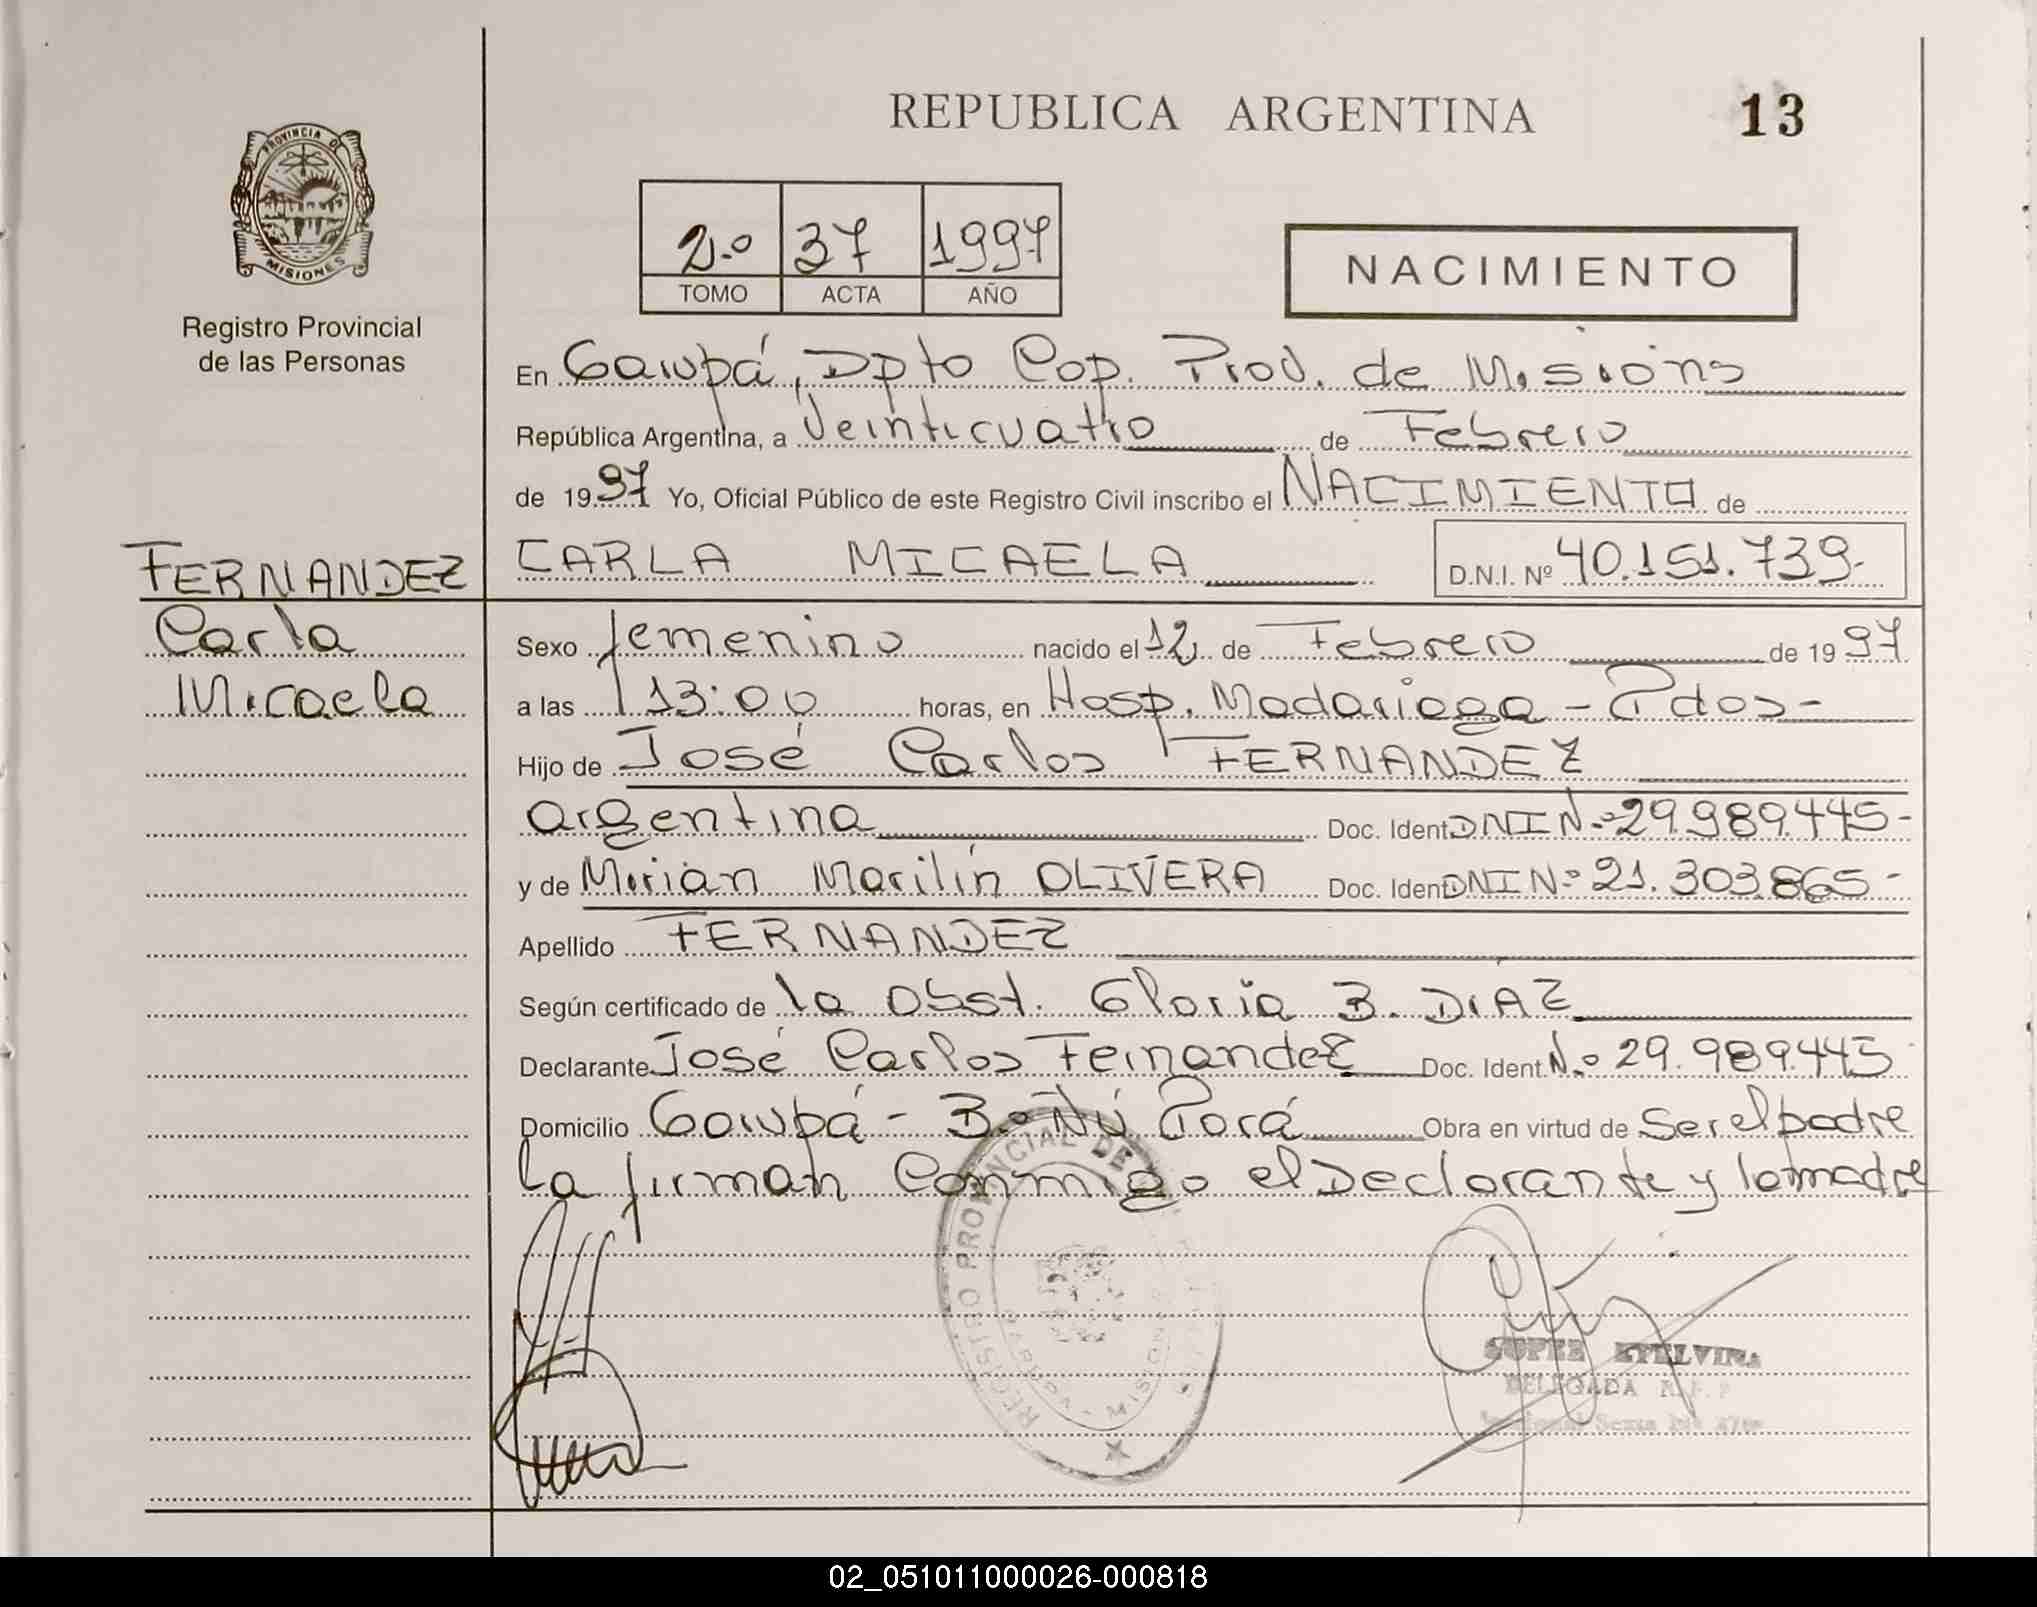 REPUBLICA ARGENTINA
13
PROVINCIA D
MISIONES
Registro Provincial
de las Personas
2.º 37 1997
TOMO ACTA AÑO
NACIMIENTO
En Garupá, Dpto Cap. Prov. de Misions
República Argentina, a Veinticuatro de Febrero
de 1997 Yo, Oficial Público de este Registro Civil inscribo el NACIMIENTO de
FERNANDEZ
CARLA MICAELA D.N.I. Nº 40.151.739-
Carla
Micaela
Sexo femenino nacido el 12 de Febrero de 1997
a las 13:00 horas, en Hosp. Madariaga - Pdas-
Hijo de José Carlos FERNANDEZ
argentina Doc. Ident DNI N.º 29.989.445-
y de Mirian Marilin OLIVERA Doc. Ident DNI Nº 21.303.865-
Apellido FERNANDEZ
Según certificado de la Obst. Gloria B. DIAZ
Declarante José Carlos Fernandez Doc. Ident. N.º 29.989.445
Domicilio Garupá - Bº Ñú Porá Obra en virtud de Ser el padre
La firman Conmigo el Declarante y la madre
REGISTRO PROVINCIAL DE
MISIONES
ETELVINA
DELEGADA
02_051011000026-000818